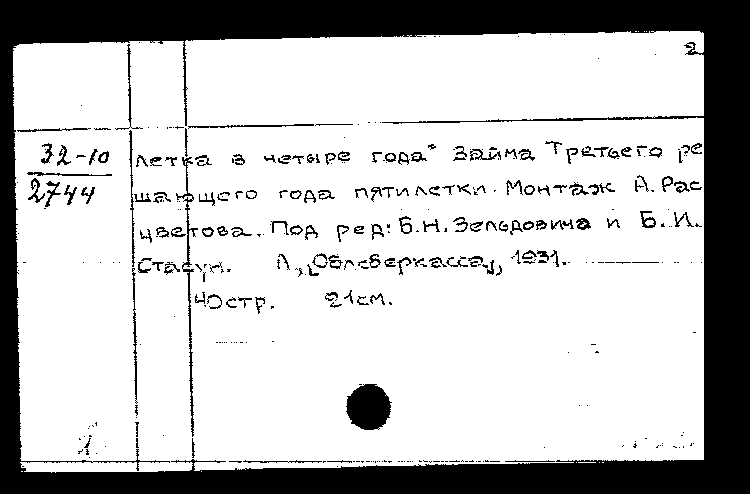 2
32-10
2744
летка в четыре года" Займа Третьего ре
шающего года пятилетки. Монтаж А. Рас
цветова. Под ред: Б.Н. Зельдовича и Б.И.
Стасун. Л., [Облсберкасса], 1931.
40 стр. 21 см.